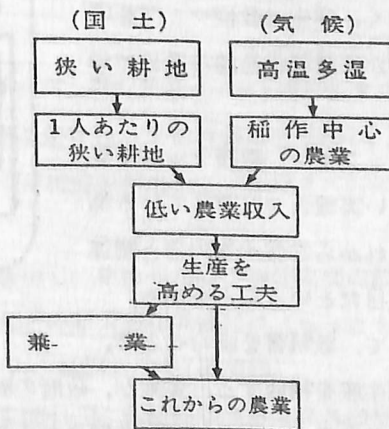 (国 土) (気 候)
狭い耕地 高温多湿
1人あたりの 稲作中心
狭い耕地 の農業
低い農業収入
生産を
高める工夫
兼 業
これからの農業